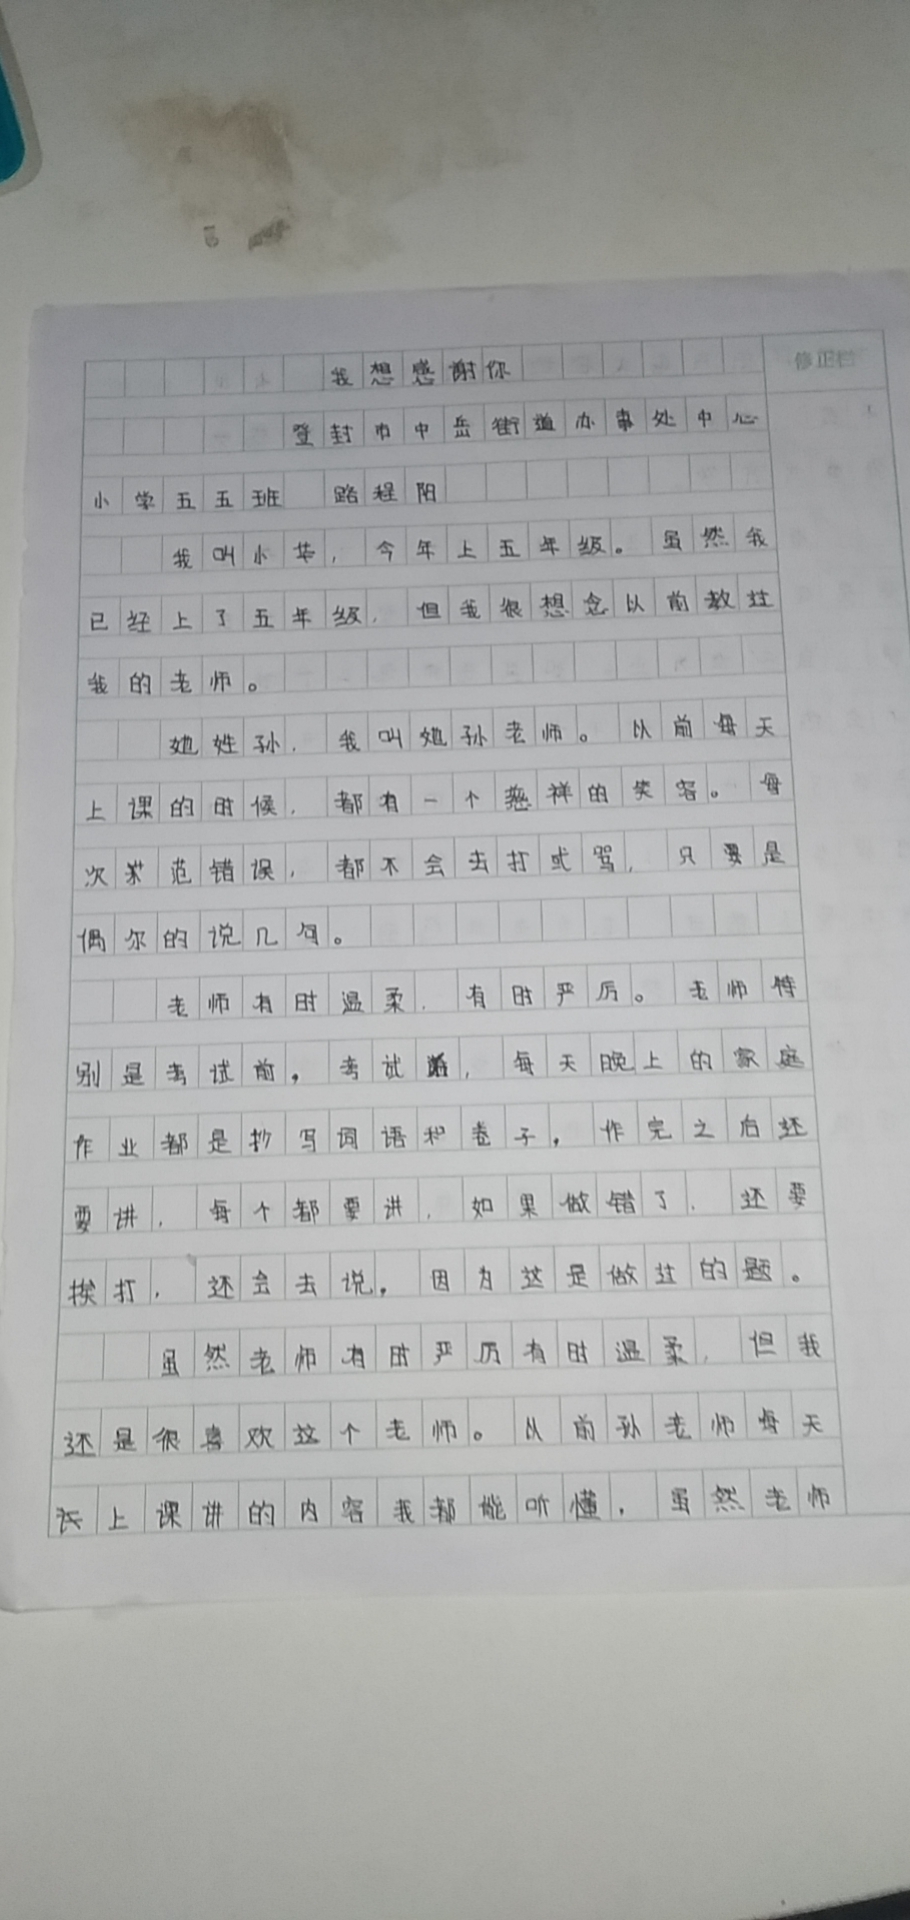 我想感谢你
修正栏
登封市中岳街道办事处中心
小学五五班 路程阳
我叫小华，今年上五年级。虽然我
已经上了五年级，但我很想念以前教过
我的老师。
她姓孙，我叫她孙老师。以前每天
上课的时候，都有一个慈祥的笑容。每
次范错误，都不会去打或骂，只要是
偶尔的说几句。
老师有时温柔，有时严厉。老师特
别是考试前，考试，每天晚上的家庭
作业都是抄写词语和卷子，作完之后还
要讲，每个都要讲，如果做错了，还要
挨打，还会去说，因为这是做过的题。
虽然老师有时严厉有时温柔，但我
还是很喜欢这个老师。以前孙老师每天
上课讲的内容我都能听懂，虽然老师